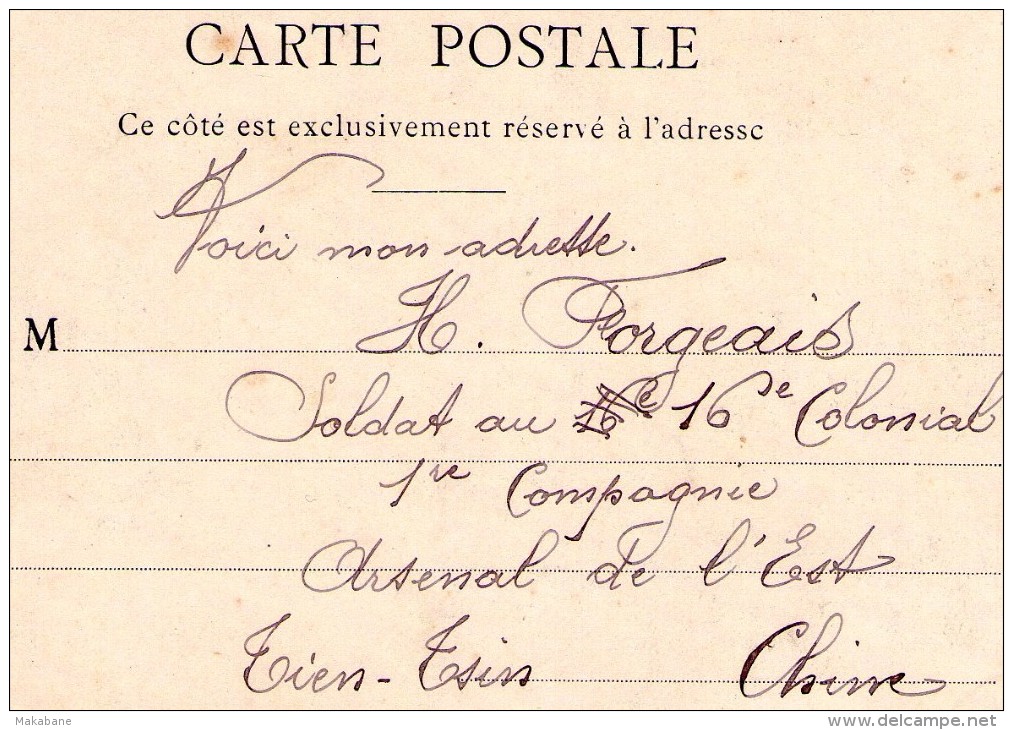 CARTE POSTALE
Ce côté est exclusivement réservé à l'adresse
Voici mon adresse.
M H. Forgeais
Soldat au 16e 16e Colonial
1re Compagnie
Arsenal de l'Est
Tien-Tsin Chine
Makabane
www.delcampe.net